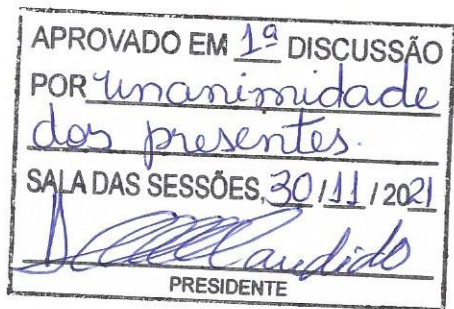 APROVADO EM 1ª DISCUSSÃO
POR unanimidade
dos presentes.
SALA DAS SESSÕES, 30/11/2021
Candido
PRESIDENTE